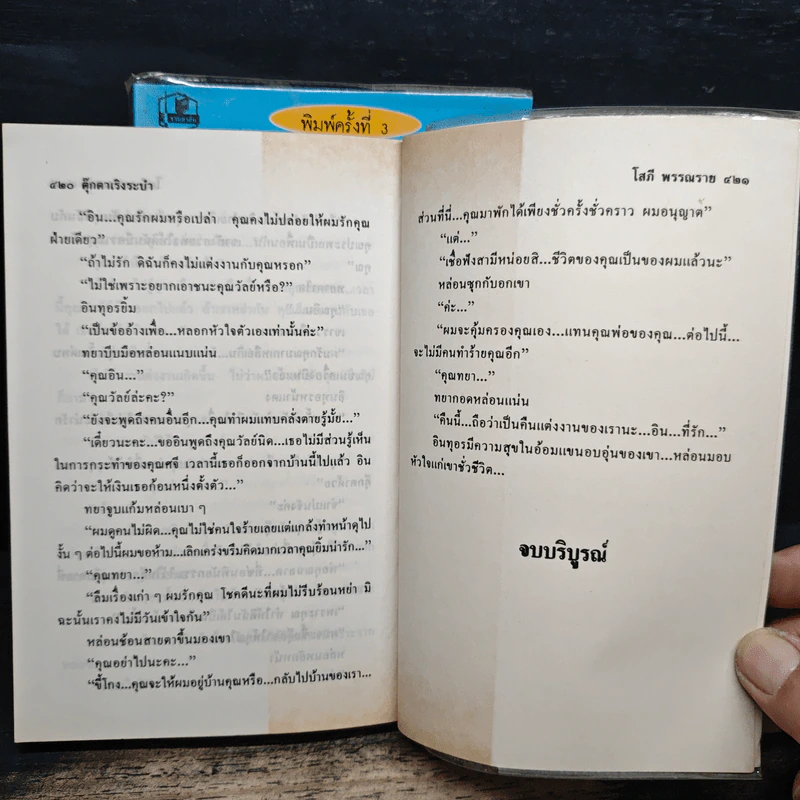 พิมพ์ครั้งที่ 3
๔๒๐ ตุ๊กตาเริงระบำ
“อิน...คุณรักผมหรือเปล่า คุณคงไม่ปล่อยให้ผมรักคุณ
ฝ่ายเดียว”
“ถ้าไม่รัก ดิฉันก็คงไม่แต่งงานกับคุณหรอก”
“ไม่ใช่เพราะอยากเอาชนะคุณวัลย์หรือ?”
อินทุอรยิ้ม
“เป็นข้ออ้างเพื่อ...หลอกหัวใจตัวเองเท่านั้นค่ะ”
ทยาบีบมือหล่อนแนบแน่น
“คุณอิน...”
“คุณวัลย์ล่ะคะ?”
“ยังจะพูดถึงคนอื่นอีก...คุณทำผมแทบคลั่งตายรู้มั้ย...”
“เดี๋ยวนะคะ...ขออินพูดถึงคุณวัลย์นิด...เธอไม่มีส่วนรู้เห็น
ในการกระทำของคุณศจี เวลานี้เธอก็ออกจากบ้านนี้ไปแล้ว อิน
คิดว่าจะให้เงินเธอก้อนหนึ่งตั้งตัว...”
ทยาจูบแก้มหล่อนเบา ๆ
“ผมดูคนไม่ผิด...คุณไม่ใช่คนใจร้ายเลยแต่แกล้งทำหน้าดุไป
งั้น ๆ ต่อไปนี้ผมขอห้าม...เลิกเคร่งขรึมคิดมากเวลาคุณยิ้มน่ารัก...”
“คุณทยา...”
“ลืมเรื่องเก่า ๆ ผมรักคุณ โชคดีนะที่ผมไม่รีบร้อนหย่า มิ
ฉะนั้นเราคงไม่มีวันเข้าใจกัน”
หล่อนช้อนสายตาขึ้นมองเขา
“คุณอย่าไปนะคะ...”
“ขี้โกง...คุณจะให้ผมอยู่บ้านคุณหรือ...กลับไปบ้านของเรา...
โสภี พรรณราย ๔๒๑
ส่วนที่นี่...คุณมาพักได้เพียงชั่วครั้งชั่วคราว ผมอนุญาต”
“แต่...”
“เชื่อฟังสามีหน่อยสิ...ชีวิตของคุณเป็นของผมแล้วนะ”
หล่อนซุกกับอกเขา
“ค่ะ...”
“ผมจะคุ้มครองคุณเอง...แทนคุณพ่อของคุณ...ต่อไปนี้...
จะไม่มีคนทำร้ายคุณอีก”
“คุณทยา...”
ทยากอดหล่อนแน่น
“คืนนี้...ถือว่าเป็นคืนแต่งงานของเรานะ...อิน...ที่รัก...”
อินทุอรมีความสุขในอ้อมแขนอบอุ่นของเขา...หล่อนมอบ
หัวใจแก่เขาชั่วชีวิต...
จบบริบูรณ์